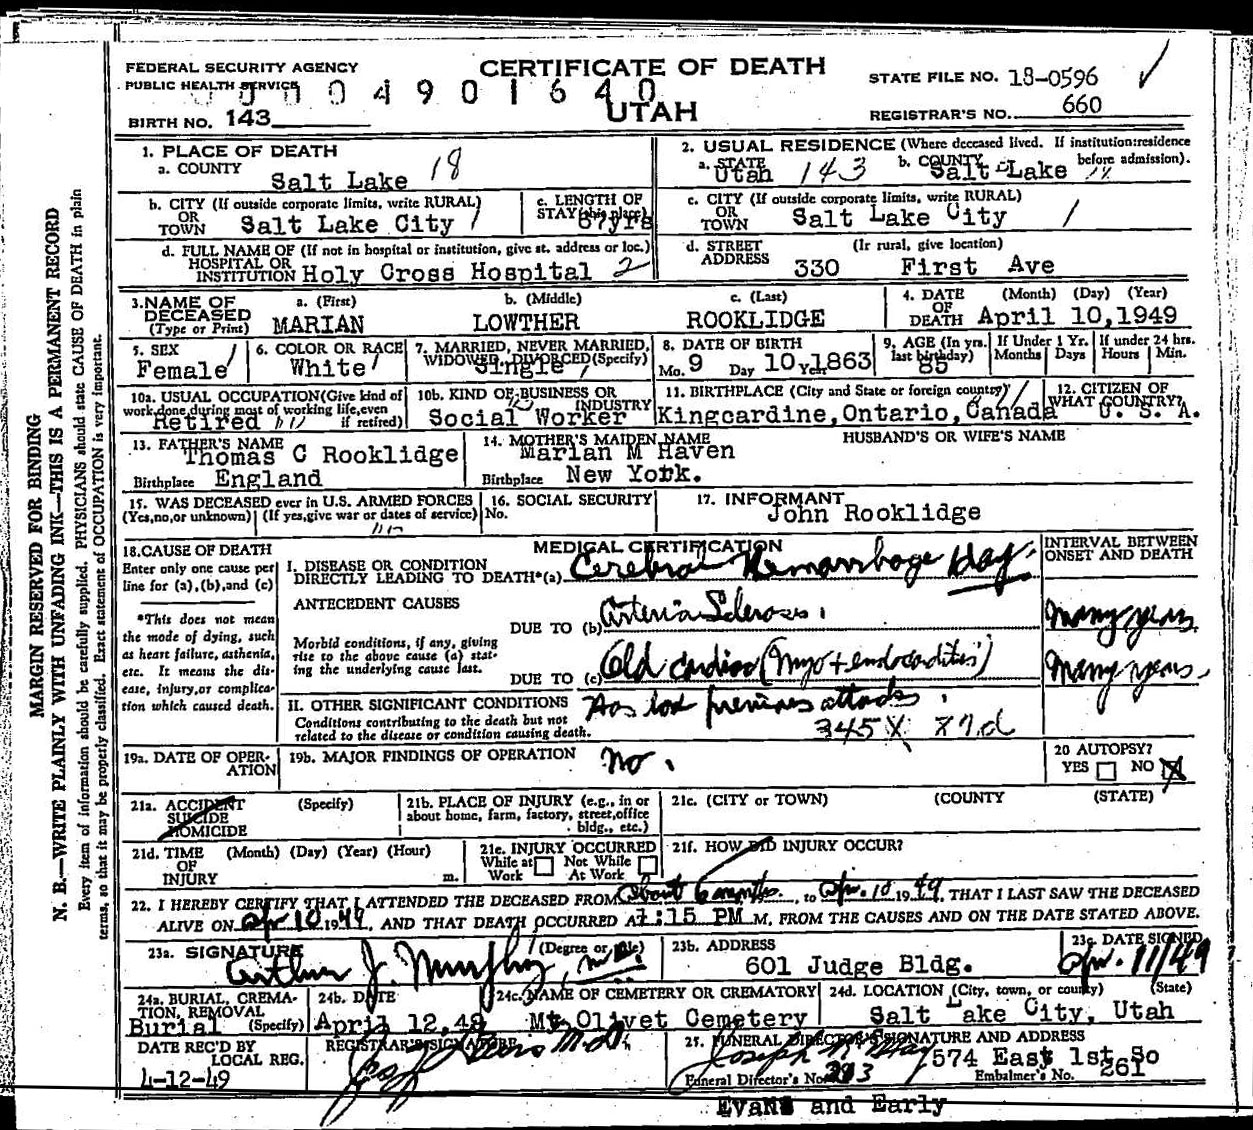 FEDERAL SECURITY AGENCY
PUBLIC HEALTH SERVICE
CERTIFICATE OF DEATH
STATE FILE NO. 18-0596
4 9 0 1 6 4 0
UTAH
REGISTRAR'S NO. 660
BIRTH NO. 143
1. PLACE OF DEATH
a. COUNTY Salt Lake 18
2. USUAL RESIDENCE (Where deceased lived. If institution:residence before admission).
a. STATE Utah 143 b. COUNTY Salt Lake
b. CITY (If outside corporate limits, write RURAL) OR TOWN Salt Lake City
c. LENGTH OF STAY (this place) 67yrs
c. CITY (If outside corporate limits, write RURAL) OR TOWN Salt Lake City
d. FULL NAME OF (If not in hospital or institution, give st. address or loc.) HOSPITAL OR INSTITUTION Holy Cross Hospital 2
d. STREET ADDRESS (If rural, give location) 330 First Ave
3.NAME OF DECEASED (Type or Print)
a. (First) MARIAN
b. (Middle) LOWTHER
c. (Last) ROOKLIDGE
4. DATE OF DEATH (Month) (Day) (Year) April 10,1949
5. SEX Female
6. COLOR OR RACE White
7. MARRIED, NEVER MARRIED, WIDOWED, DIVORCED(Specify) Single
8. DATE OF BIRTH Mo. 9 Day 10 Year 1863
9. AGE (In yrs. last birthday) 85
If Under 1 Yr. Months Days
If under 24 hrs. Hours Min.
10a. USUAL OCCUPATION(Give kind of work done during most of working life,even if retired) Retired
10b. KIND OF BUSINESS OR INDUSTRY Social Worker
11. BIRTHPLACE (City and State or foreign country) Kingcardine,Ontario,Canada
12. CITIZEN OF WHAT COUNTRY? U. S. A.
13. FATHER'S NAME Thomas C Rooklidge
Birthplace England
14. MOTHER'S MAIDEN NAME Marian M Haven
Birthplace New York.
HUSBAND'S OR WIFE'S NAME
15. WAS DECEASED ever in U.S. ARMED FORCES (Yes,no,or unknown) (If yes,give war or dates of service)
16. SOCIAL SECURITY No.
17. INFORMANT John Rooklidge
18.CAUSE OF DEATH
Enter only one cause per line for (a),(b),and (c)
*This does not mean the mode of dying, such as heart failure, asthenia, etc. It means the disease, injury,or complication which caused death.
MEDICAL CERTIFICATION
INTERVAL BETWEEN ONSET AND DEATH
I. DISEASE OR CONDITION DIRECTLY LEADING TO DEATH*(a) Cerebral Hemorrhage 1 day.
ANTECEDENT CAUSES
DUE TO (b) Arterio Sclerosis. Many years
Morbid conditions, if any, giving rise to the above cause (a) stating the underlying cause last.
DUE TO (c) Old cardiac (myo + endocarditis) Many years
II. OTHER SIGNIFICANT CONDITIONS
Conditions contributing to the death but not related to the disease or condition causing death.
Has had previous attacks.
345X
19a. DATE OF OPERATION
19b. MAJOR FINDINGS OF OPERATION No.
20 AUTOPSY? YES NO X
21a. ACCIDENT SUICIDE HOMICIDE (Specify)
21b. PLACE OF INJURY (e.g., in or about home, farm, factory, street,office bldg., etc.)
21c. (CITY OR TOWN) (COUNTY) (STATE)
21d. TIME OF INJURY (Month) (Day) (Year) (Hour) m.
21e. INJURY OCCURRED While at Work Not While At Work
21f. HOW DID INJURY OCCUR?
22. I HEREBY CERTIFY THAT I ATTENDED THE DECEASED FROM About 6 months, to Apr. 10 1949, THAT I LAST SAW THE DECEASED
ALIVE ON Apr 10 1949, AND THAT DEATH OCCURRED AT 7:15 PM M, FROM THE CAUSES AND ON THE DATE STATED ABOVE.
23a. SIGNATURE (Degree or title) Arthur J. Murphy, M.D.
23b. ADDRESS 601 Judge Bldg.
23c. DATE SIGNED Apr. 11/49
24a. BURIAL, CREMATION, REMOVAL (Specify) Burial
24b. DATE April 12,49
24c. NAME OF CEMETERY OR CREMATORY Mt Olivet Cemetery
24d. LOCATION (City, town, or county) (State) Salt Lake City, Utah
DATE REC'D BY LOCAL REG. 4-12-49
REGISTRAR'S SIGNATURE M.D.
25. FUNERAL DIRECTOR'S SIGNATURE AND ADDRESS Joseph 574 East 1st So
Funeral Director's No. Embalmer's No. 261
Evans and Early
MARGIN RESERVED FOR BINDING
N. B.—WRITE PLAINLY WITH UNFADING INK—THIS IS A PERMANENT RECORD
Every item of information should be carefully supplied. PHYSICIANS should state CAUSE OF DEATH in plain
terms, so that it may be properly classified. Exact statement of OCCUPATION is very important.